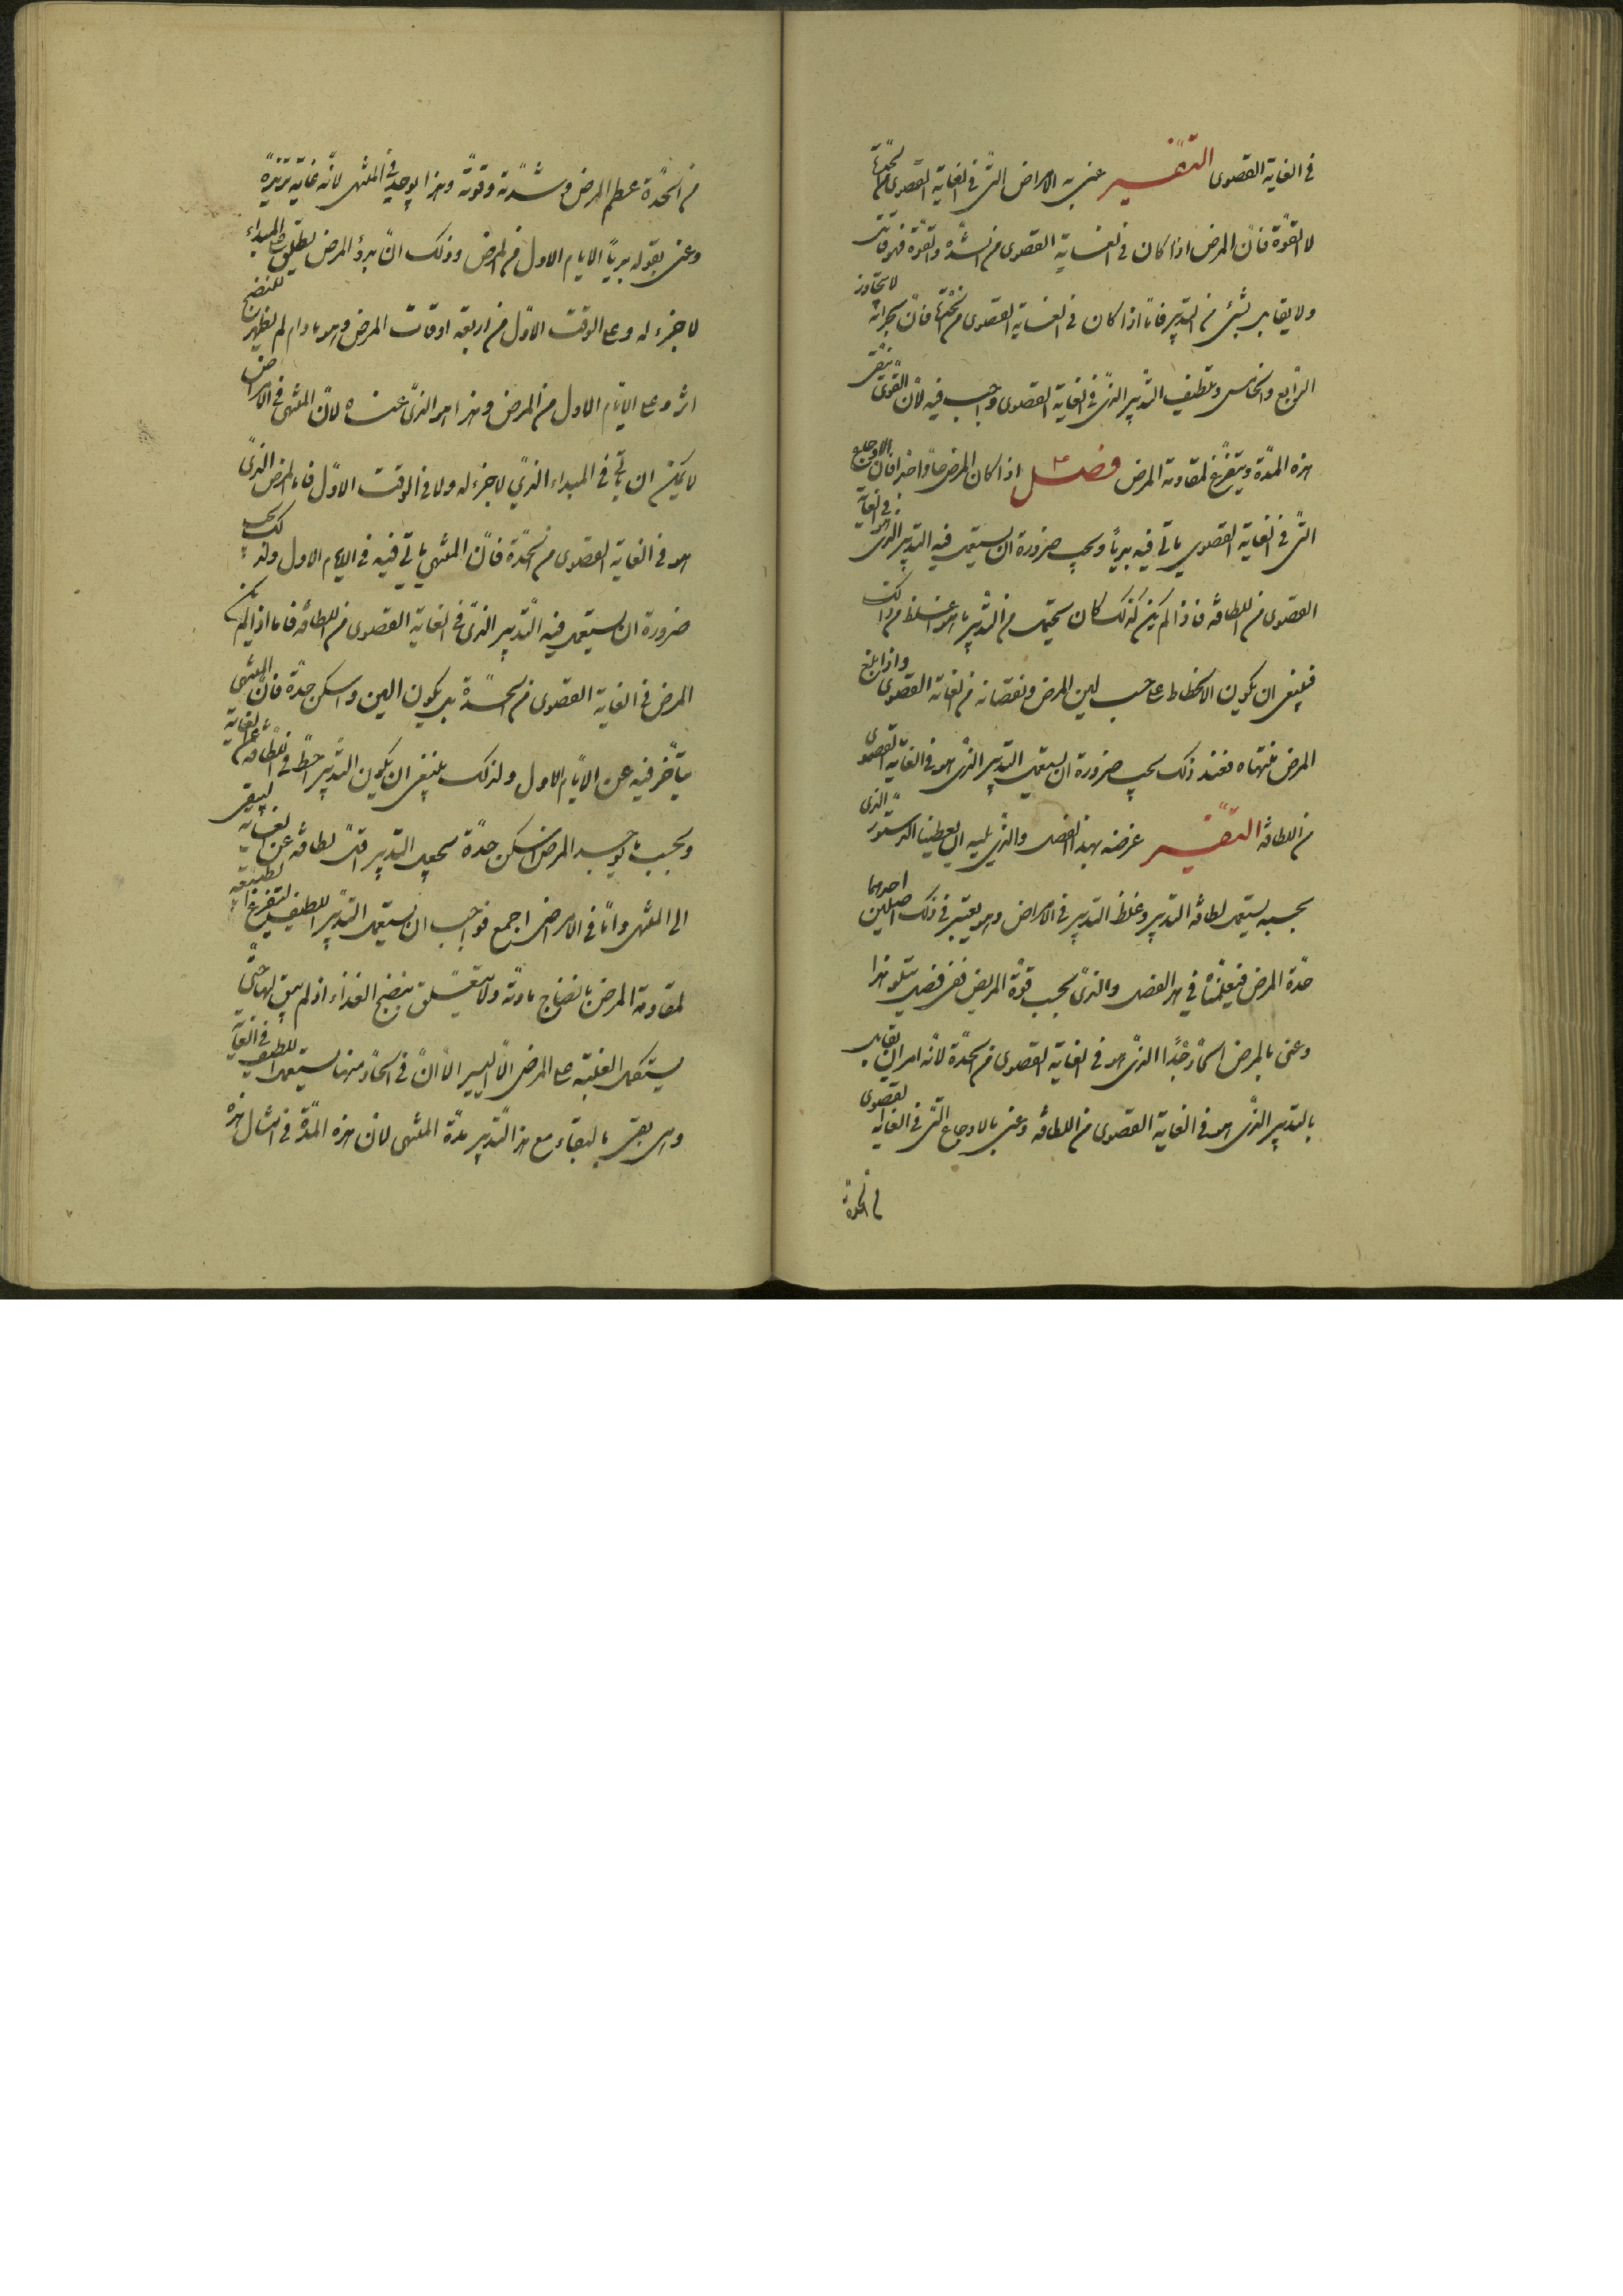 في الغاية القصوى التفسير عنى به الامراض التي في الغاية القصوى من الحدة
لا القوة فان المرض اذا كان في الغاية القصوى من الشدة والقوة فهو قاتل
ولا يقابل بشئ من التدبير فاما اذا كان في الغاية القصوى من الحدة فان بحرانه لا يتجاوز
الرابع والخامس وتلطيف التدبير الذي في الغاية القصوى واجب فيه لان القوى تبقى
هذه المدة ويتفرغ لمقاومة المرض فصل اذا كان المرض حادا جدا فان الاوجاع
التي في الغاية القصوى ياتي فيه بديا ويجب ضرورة ان يستعمل فيه التدبير الذي هو في الغاية
القصوى من اللطافة فاذا لم يكن كذلك كان يحتمل من التدبير ما هو اغلظ من ذلك
فينبغي ان يكون الانحطاط على حسب لين المرض ونقصانه من الغاية القصوى واذا بلغ
المرض منتهاه فعند ذلك يجب ضرورة ان يستعمل التدبير الذي هو في الغاية القصوى
من اللطافة التفسير غرضه بهذا الفصل والذي يليه ان يعطينا الدستور الذي
بحسبه يستعمل لطافة التدبير وغلظ التدبير في الامراض وهو يعتبر في ذلك اصلين احدهما
حدة المرض فيعلمناه في هذا الفصل والذي بحسب قوة المريض ففي فصل يتلو هذا
وعنى بالمرض الحاد جدا الذي هو في الغاية القصوى من الحدة لانه امر ان يقابل
بالتدبير الذي هو في الغاية القصوى من اللطافة وعنى بالاوجاع التي في الغاية القصوى
من الحدة
من الحدة عظم المرض وشدته وقوته وهذا يوجد في المنتهى لانه غاية تزيده
وعنى بقوله بديا الايام الاول من المرض وذلك ان بدؤ المرض يطلق على المبداء
لا جزء له وعلى الوقت الاول من اربعة اوقات المرض وهو ما دام لم يظهر للنضج
اثر وعلى الايام الاول من المرض وهذا هو الذي عناه لان المنتهى في الامراض
لا يمكن ان ياتي في المبداء الذي لا جزء له ولا في الوقت الاول فاما المرض الذي
هو في الغاية القصوى من الحدة فان المنتهى ياتي فيه في الايام الاول ولذلك يجب
ضرورة ان يستعمل فيه التدبير الذي في الغاية القصوى من اللطافة فاما اذا لم يكن
المرض في الغاية القصوى من الحدة بل يكون الين واسكن حدة فان المنتهى
يتأخر فيه عن الايام الاول ولذلك ينبغي ان يكون التدبير احط في اللطافة عن الغاية
وبحسب ما يوجد المرض اسكن حدة يجعل التدبير اقل لطافة عن الغاية ليبقى
الى المنتهى واما في الامراض اجمع فواجب ان يستعمل التدبير اللطيف لتتفرغ الطبيعة
لمقاومة المرض بانضاج مادته ولا تتعلق بنضج الغذاء اذ لم يبق لها حتى
يستكمل الغلبة على المرض الا اليسير الا ان في الحاد منها يستعمل اللطيف في الغاية
وهي تفي بالبقاء مع هذا التدبير مدة المنتهى لان هذه المدة في امثال هذه